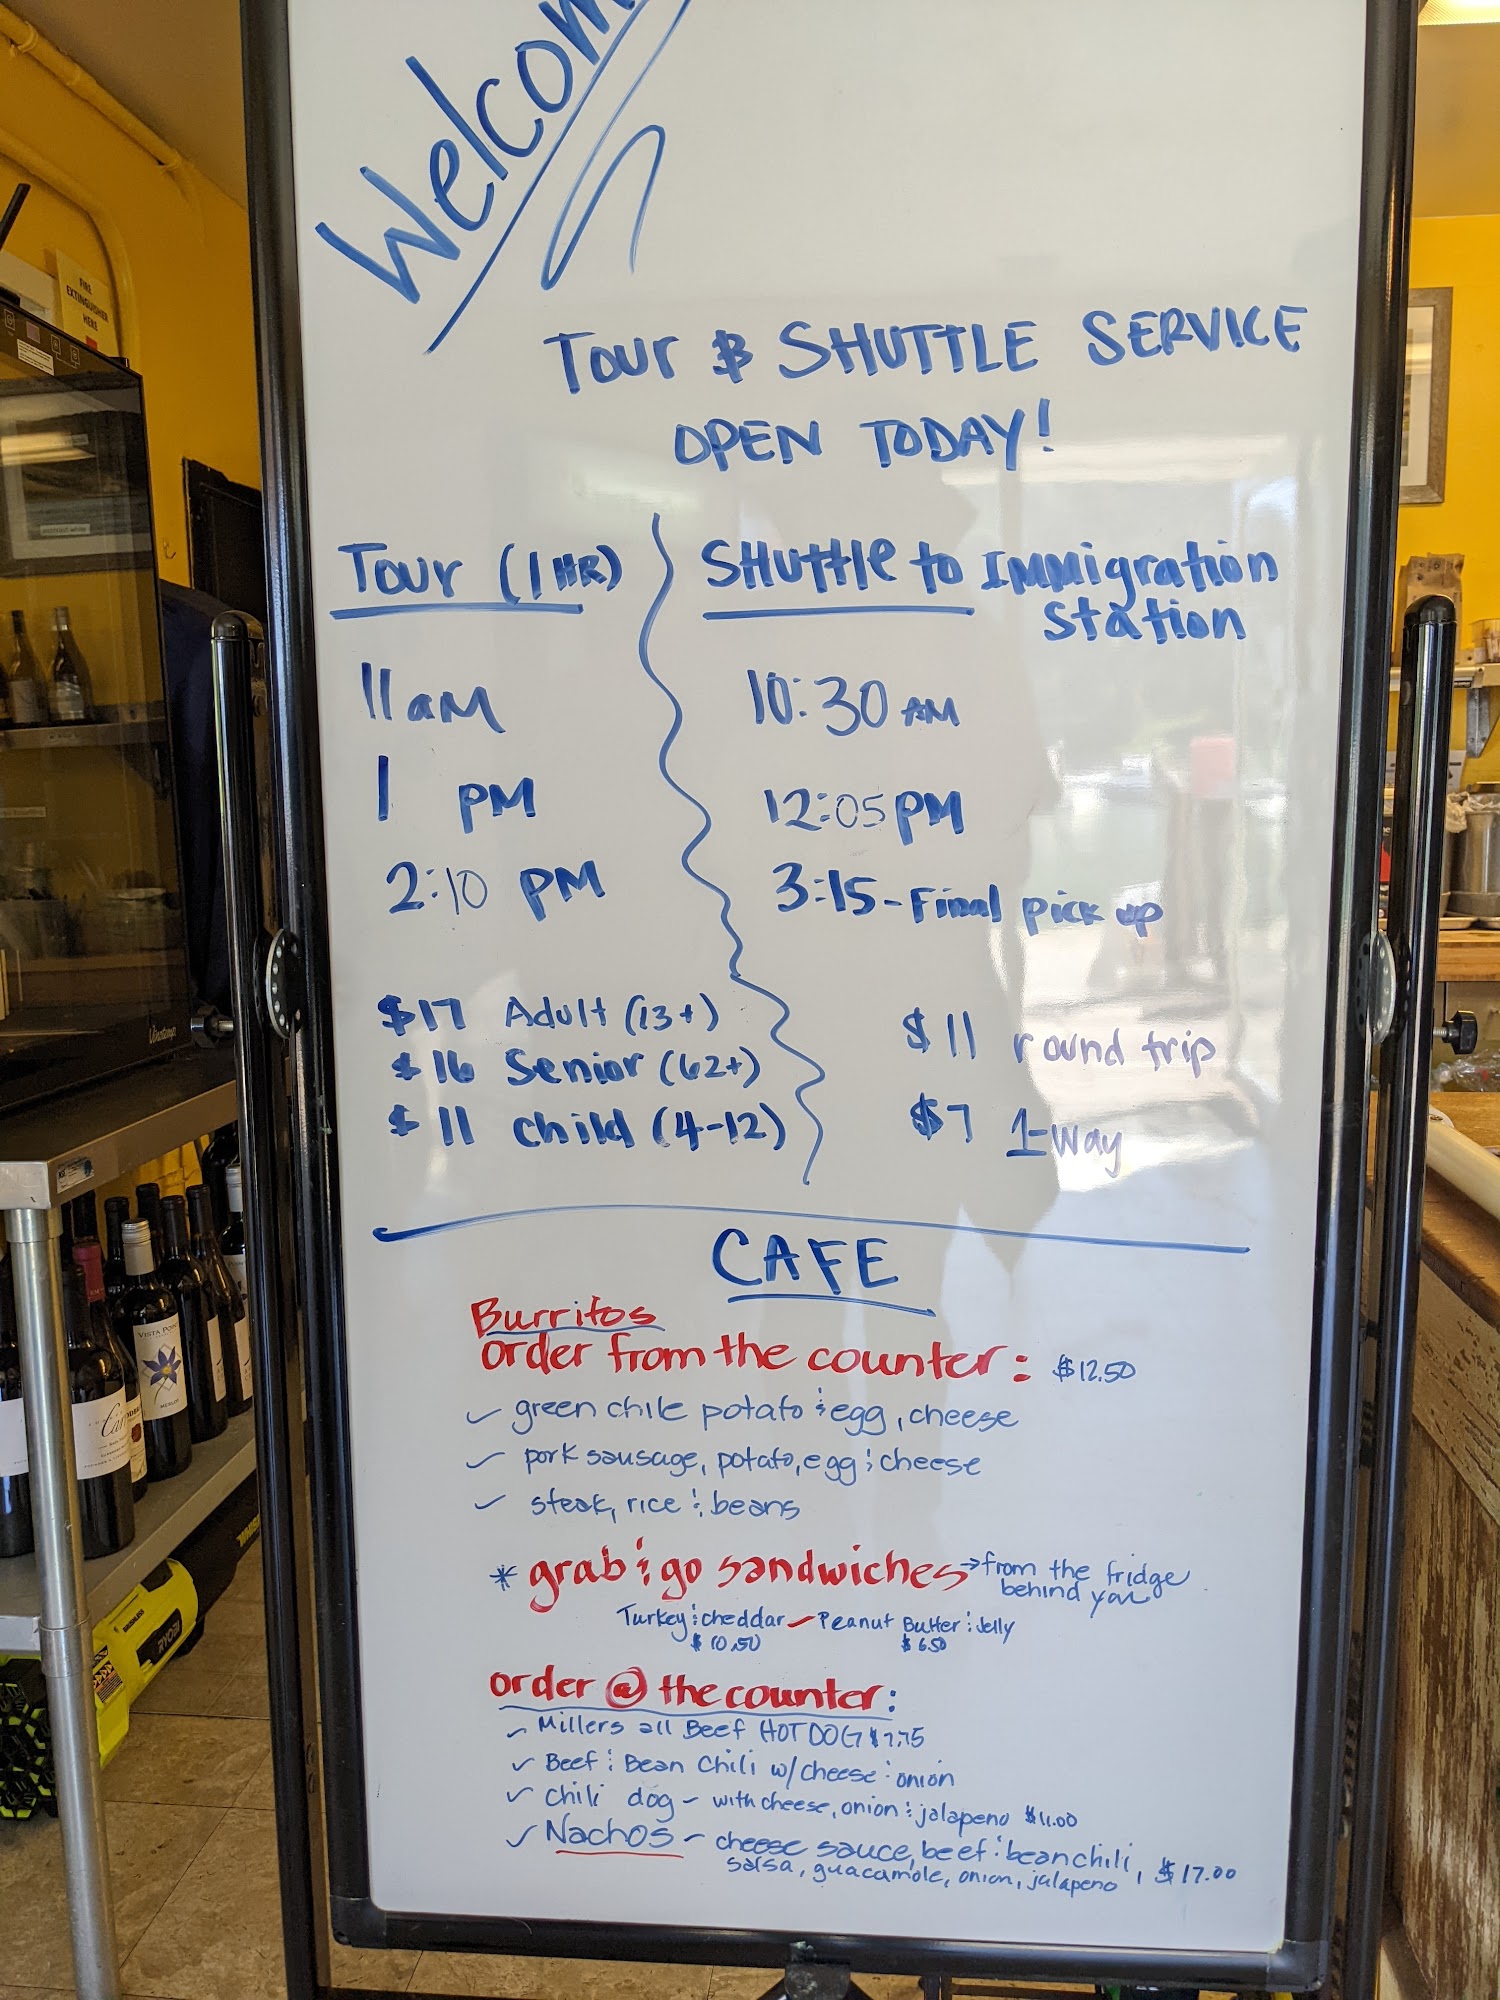 Welcom
TOUR & SHUTTLE SERVICE
OPEN TODAY!
Tour (1 HR)
11 aM
1 PM
2:10 PM
$17 Adult (13+)
$16 Senior (62+)
$11 Child (4-12)
SHuttle to Immigration
Station
10:30 AM
12:05 PM
3:15 - Final pick up
$11 round trip
$7 1-Way
CAFE
Burritos
order from the counter: $12.50
green chile potato & egg, cheese
pork sausage, potato, egg & cheese
steak, rice & beans
* grab & go sandwiches → from the fridge
behind you
Turkey & cheddar - Peanut Butter & Jelly
$10.50 $6.50
order @ the counter:
Millers all Beef HOT DOG $7.75
Beef & Bean Chili w/ cheese & onion
chili dog - with cheese, onion & jalapeno $11.00
Nachos - cheese sauce, beef & bean chili,
salsa, guacamole, onion, jalapeno, $17.00
FIRE
EXTINGUISHER
HERE
Vinotemp
VISTA POINT
MERLOT
RYOBI